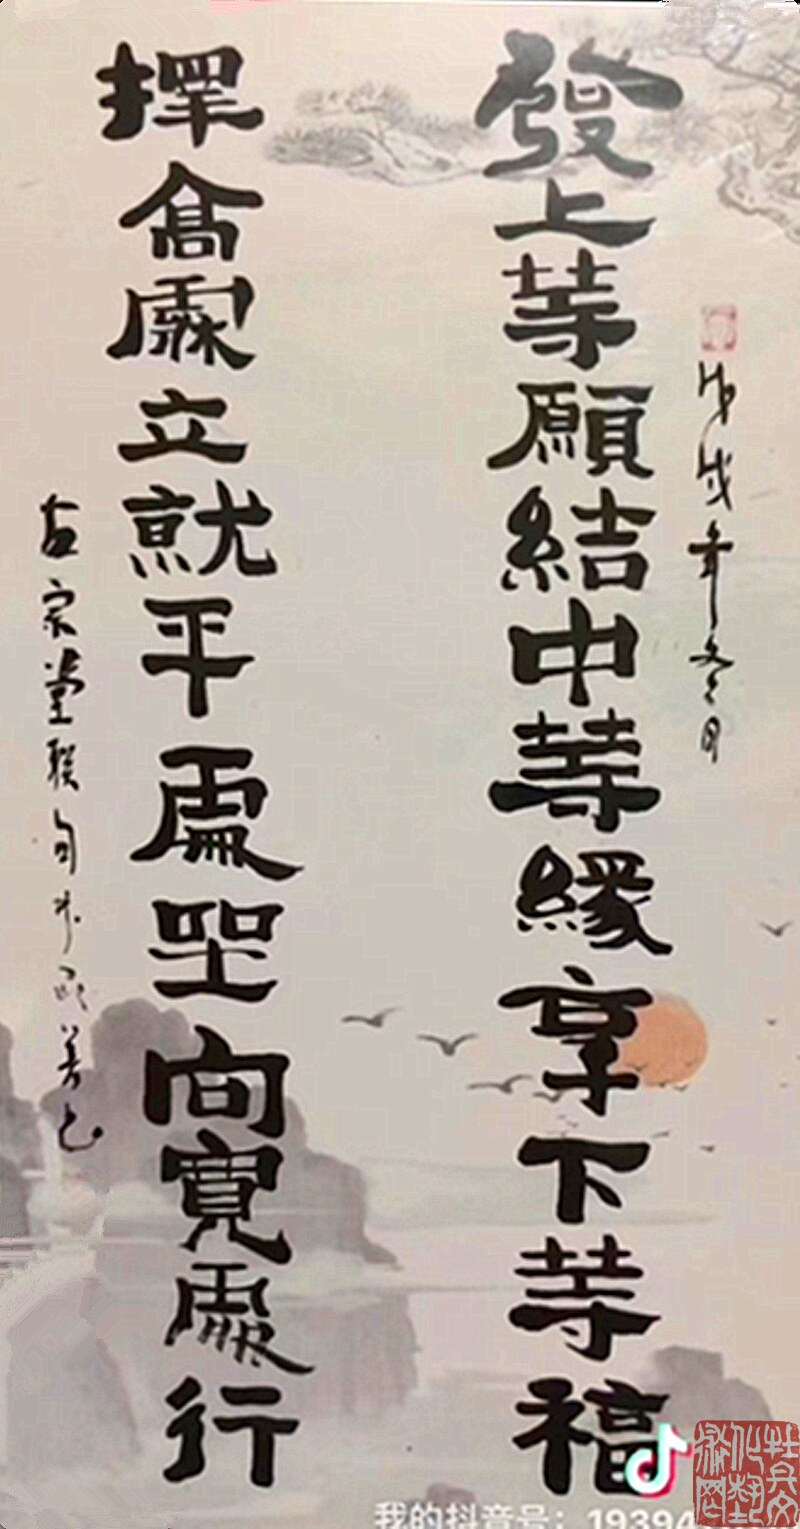 戊戌年冬月
發上等願結中等緣享下等福
擇高處立就平處坐向寬處行
左宗堂聯句
我的抖音号：19394